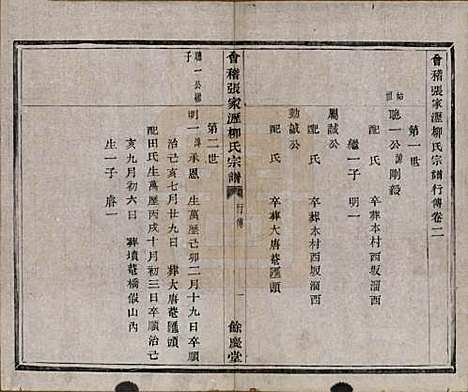 會稽張家瀝柳氏宗譜行傳卷二
第一世
始祖
聽一公諱剛毅
配氏 卒葬本村西坂溜西
繼一子 明一
屬誠公
配氏 卒葬本村西坂溜西
勤誠公
配氏 卒葬大唐菴匯頭
會稽張家瀝柳氏宗譜
行傳
一
餘慶堂
第二世
聽一公繼子
明一諱承恩 生萬歷己卯二月十九日卒順
治己亥七月廿九日 葬大唐菴匯頭
配田氏生萬歷丙戌十月初三日卒順治己
亥九月初六日 葬墳菴橋假山內
生一子 唐一